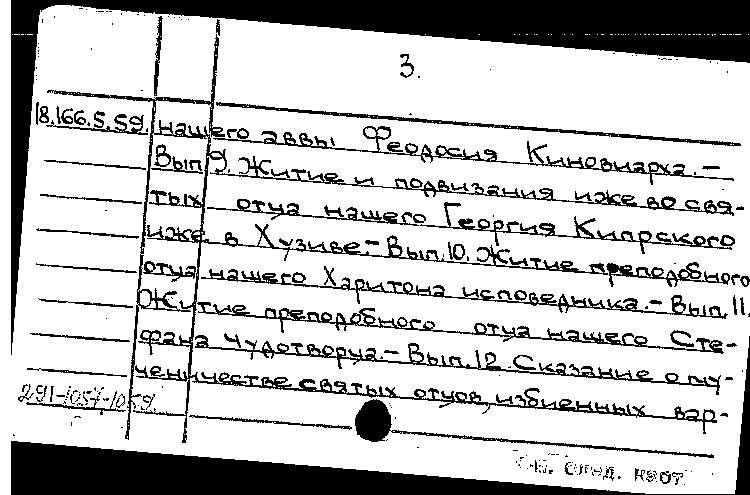 3.
18.166.5.59. нашего аввы Феодосия Киновиарха. –
Вып. 9. Житие и подвизания иже во свя-
тых отца нашего Георгия Кипрского
иже в Хузиве. – Вып. 10. Житие преподобного
отца нашего Харитона исповедника. – Вып. 11.
Житие преподобного отца нашего Сте-
фана Чудотворца. – Вып. 12. Сказание о му-
ченичестве святых отцов, избиенных вар-
291-1057-1059.
след.